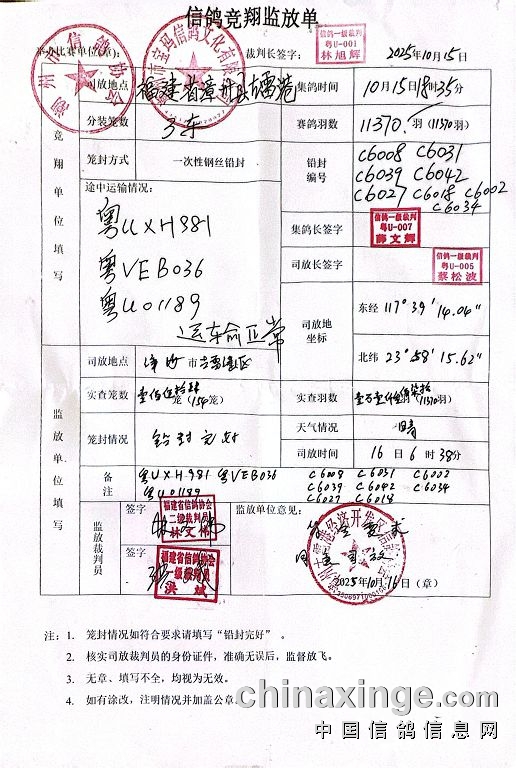 信鸽竞翔监放单
举办比赛单位(章): 裁判长签字: 信鸽一级裁判 粤U-001 林旭辉 2025年10月15日
竞翔单位填写
司放地点 福建省漳州古雷港 集鸽时间 10月15日18时35分
分装笼数 3车 赛鸽羽数 11370.羽(11370羽)
笼封方式 一次性钢丝铅封 铅封编号 C6008 C6031
C6039 C6042
C6027 C6018 C6002
C6034
途中运输情况:
粤UXH981
粤VEB036
粤U01189
运车俞正常
集鸽长签字 信鸽一级裁判 粤U-007 薛文辉
司放长签字 信鸽一级裁判 粤U-005 蔡松波
司放地坐标 东经 117°39'14.04"
北纬 23°58'15.62"
监放单位填写
司放地点 漳州市古雷港区
实查笼数 笼(154笼) 实查羽数 (11370羽)
笼封情况 铅封完好 天气情况 晴
司放时间 16日6时38分
备注 粤UXH981 粤VEB036 C6008 C6031 C6002
粤U01189 C6039 C6042 C6034
C6027 C6018
监放裁判员
签字 福建省信鸽协会 二级裁判员 林文伟
签字 福建省信鸽协会 一级裁判员 洪斌
监放单位意见:
同意司放
2025年10月16日(章)
注: 1. 笼封情况如符合要求请填写“铅封完好”。
2. 核实司放裁判员的身份证件，准确无误后，监督放飞。
3. 无章、填写不全，均视为无效。
4. 如有涂改，注明情况并加盖公章。
chinaxinge.com
中国信鸽信息网